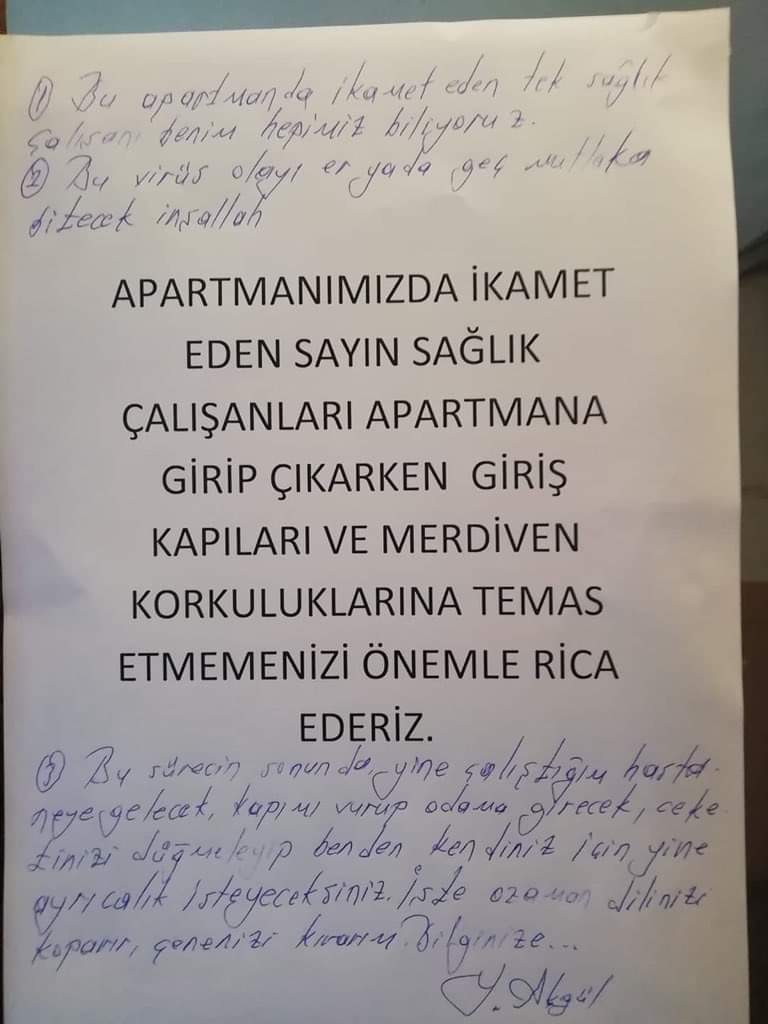 ① Bu apartmanda ikamet eden tek sağlık
çalışanı benim hepimiz biliyoruz.
② Bu virüs olayı er yada geç mutlaka
bitecek inşallah
APARTMANIMIZDA İKAMET
EDEN SAYIN SAĞLIK
ÇALIŞANLARI APARTMANA
GİRİP ÇIKARKEN GİRİŞ
KAPILARI VE MERDİVEN
KORKULUKLARINA TEMAS
ETMEMENİZİ ÖNEMLE RİCA
EDERİZ.
③ Bu sürecin sonunda, yine çalıştığım hasta-
neye gelecek, kapımı vurup odama girecek, ceke-
tinizi düğmeleyip benden kendiniz için yine
ayrıcalık isteyeceksiniz. İşte ozaman dilinizi
koparır, çenenizi kırarım. Bilginize...
Y. Akgül